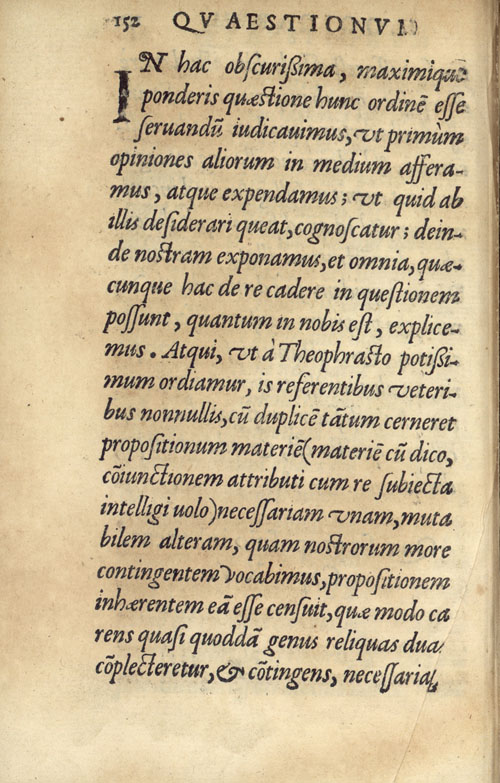 152 QVAESTIONVM
IN hac obscurißima, maximique
ponderis quæstione hunc ordinē esse
seruandū iudicauimus, vt primùm
opiniones aliorum in medium affera-
mus, atque expendamus; vt quid ab
illis desiderari queat, cognoscatur; dein-
de nostram exponamus, et omnia, quæ-
cunque hac de re cadere in questionem
possunt, quantum in nobis est, explice-
mus. Atqui, vt à Theophrasto potißi-
mum ordiamur, is referentibus veteri-
bus nonnullis, cū duplicē tātum cerneret
propositionum materiē(materiē cū dico,
cōiunctionem attributi cum re subiecta
intelligi uolo)necessariam vnam, muta
bilem alteram, quam nostrorum more
contingentem vocabimus, propositionem
inhærentem eā esse censuit, quæ modo ca
rens quasi quoddā genus reliquas duas
cōplecteretur, & cōtingens, necessaria